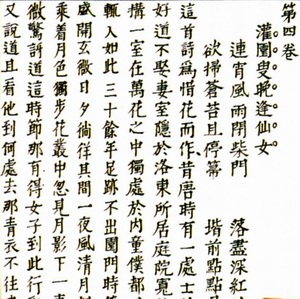 第四卷
灌園叟晚逢仙女
連宵風雨閉柴門　落盡深紅
欲掃蒼苔且停帚　堦前點點
這首詩爲惜花而作昔唐時有一處士
好道不娶妻室隱於洛東所居庭院寬
構一室在萬花之中獨處於內童僕都
輒入如此三十餘年足跡不出園門時
盛開玄微日夕徜徉其間一夜風清月
乘着月色獨步花叢中忽見月影下一
微驚訝道這時節那有得女子到此行
又說道且看他到何處去那青衣不往